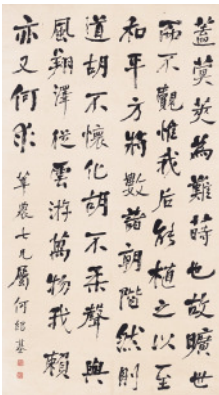 蓋蓂莢為難蒔也故曠世
而不覿惟我后能植之以至
和平方將數諸朝階然則
道胡不懷化胡不柔聲與
風翔澤從雲游萬物我賴
亦又何求
莘農七兄屬何紹基